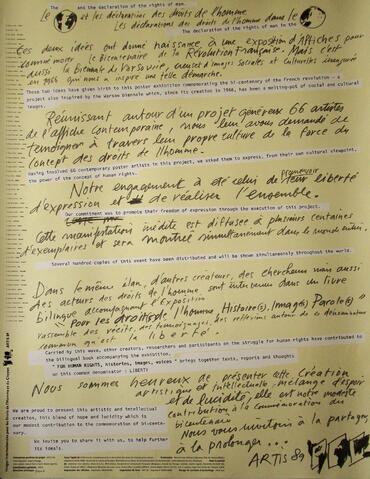 The and the declaration of the rights of man.
Le et les déclarations des droits de l'homme
Les déclarations des droits de l'homme dans le
The declaration of the rights of man in the
Ces deux idées ont donné naissance à une exposition d'Affiches pour
commémorer le Bicentenaire de la Révolution Française. Mais c'est
aussi la Biennale de Varsovie, creuset d'Images Sociales et Culturelles inauguré
en 1966 qui nous a inspiré une telle démarche.
These two ideas have given birth to this poster exhibition commemorating the bi-centenary of the French revolution - a
project also inspired by the Warsaw Biennale which, since its creation in 1966, has been a melting-pot of social and cultural
images.
Réunissant autour d'un projet généreux 66 artistes
de l'affiche contemporaine, nous leur avons demandé de
témoigner à travers leur propre culture de la force du
concept des droits de l'homme.
Having involved 66 contemporary poster artists in this project, we asked them to express, from their own cultural viewpoint,
the power of the concept of human rights.
promouvoir
Notre engagement a été celui de leur liberté
d'expression et de réaliser l'ensemble.
Our commitment was to promote their freedom of expression through the execution of this project.
Cette inédite est diffusée à plusieurs centaines
d'exemplaires et sera montrée simultanément dans le monde entier.
Several hundred copies of this event have been distributed and will be shown simultaneously throughout the world.
Dans le même élan, d'autres créateurs, des chercheurs mais aussi
des acteurs des droits de l'homme sont intervenus dans un livre
bilingue accompagnant l'Exposition
"Pour les droits de l'homme Histoire(s), Image(s) Parole(s)"
rassemble des récits, des témoignages, des réflexions autour de ce dénominateur
commun qu'est la liberté.
Carried by this wave, other creators, researchers and participants on the struggle for human rights have contributed to
the bilingual book accompanying the exhibition.
"FOR HUMAN RIGHTS, histories, images, voices" brings together texts, reports and thoughts
on this common denominator : LIBERTY
Nous sommes heureux de présenter cette Création
artistique et intellectuelle, mélange d'espoir
et de lucidité; elle est notre modeste
contribution à la commémoration du
bicentenaire
We are proud to present this artistic and intellectual
creation, this blend of hope and lucidity which is
our modest contribution to the commemoration of bi-cente-
nary.
Nous vous invitons à la partager,
à la prolonger...
We invite you to share it with us, to help further
its ideals.
ARTIS 89